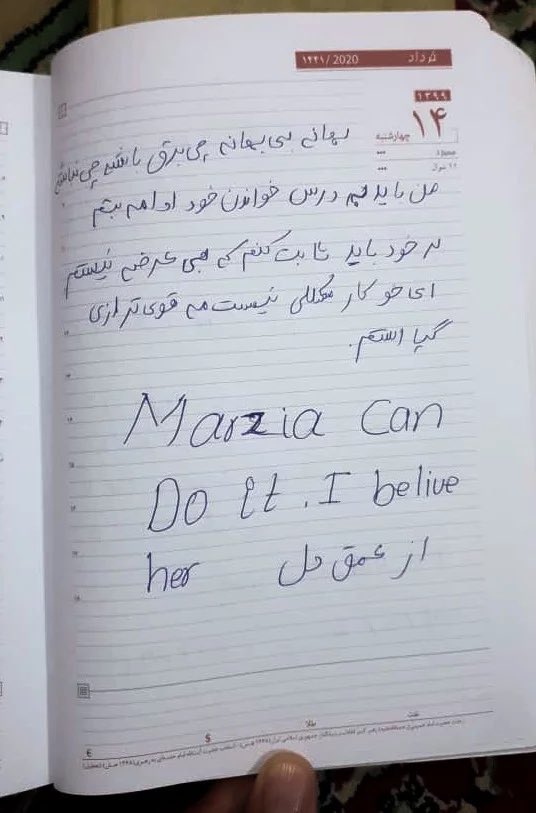 خرداد 2020 / ۱۴۴۱
۱۳۹۹
۱۴
چهارشنبه
3 June
۱۱ شوال
بهانه بی بهانه چی برق باشه چی نباشه
من باید به درس خواندن خود ادامه بتم
به خود باید ثابت کنم که بی عرضه نیستم
ای خو کار مشکلی نیست مه قوی تر ازی
گپا استم.
Marzia Can
Do it. I belive
her از عمق دل